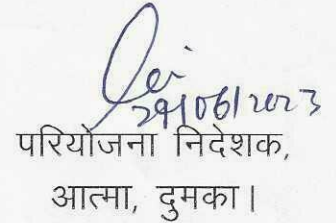 29/06/2023
परियोजना निदेशक,
आत्मा, दुमका।